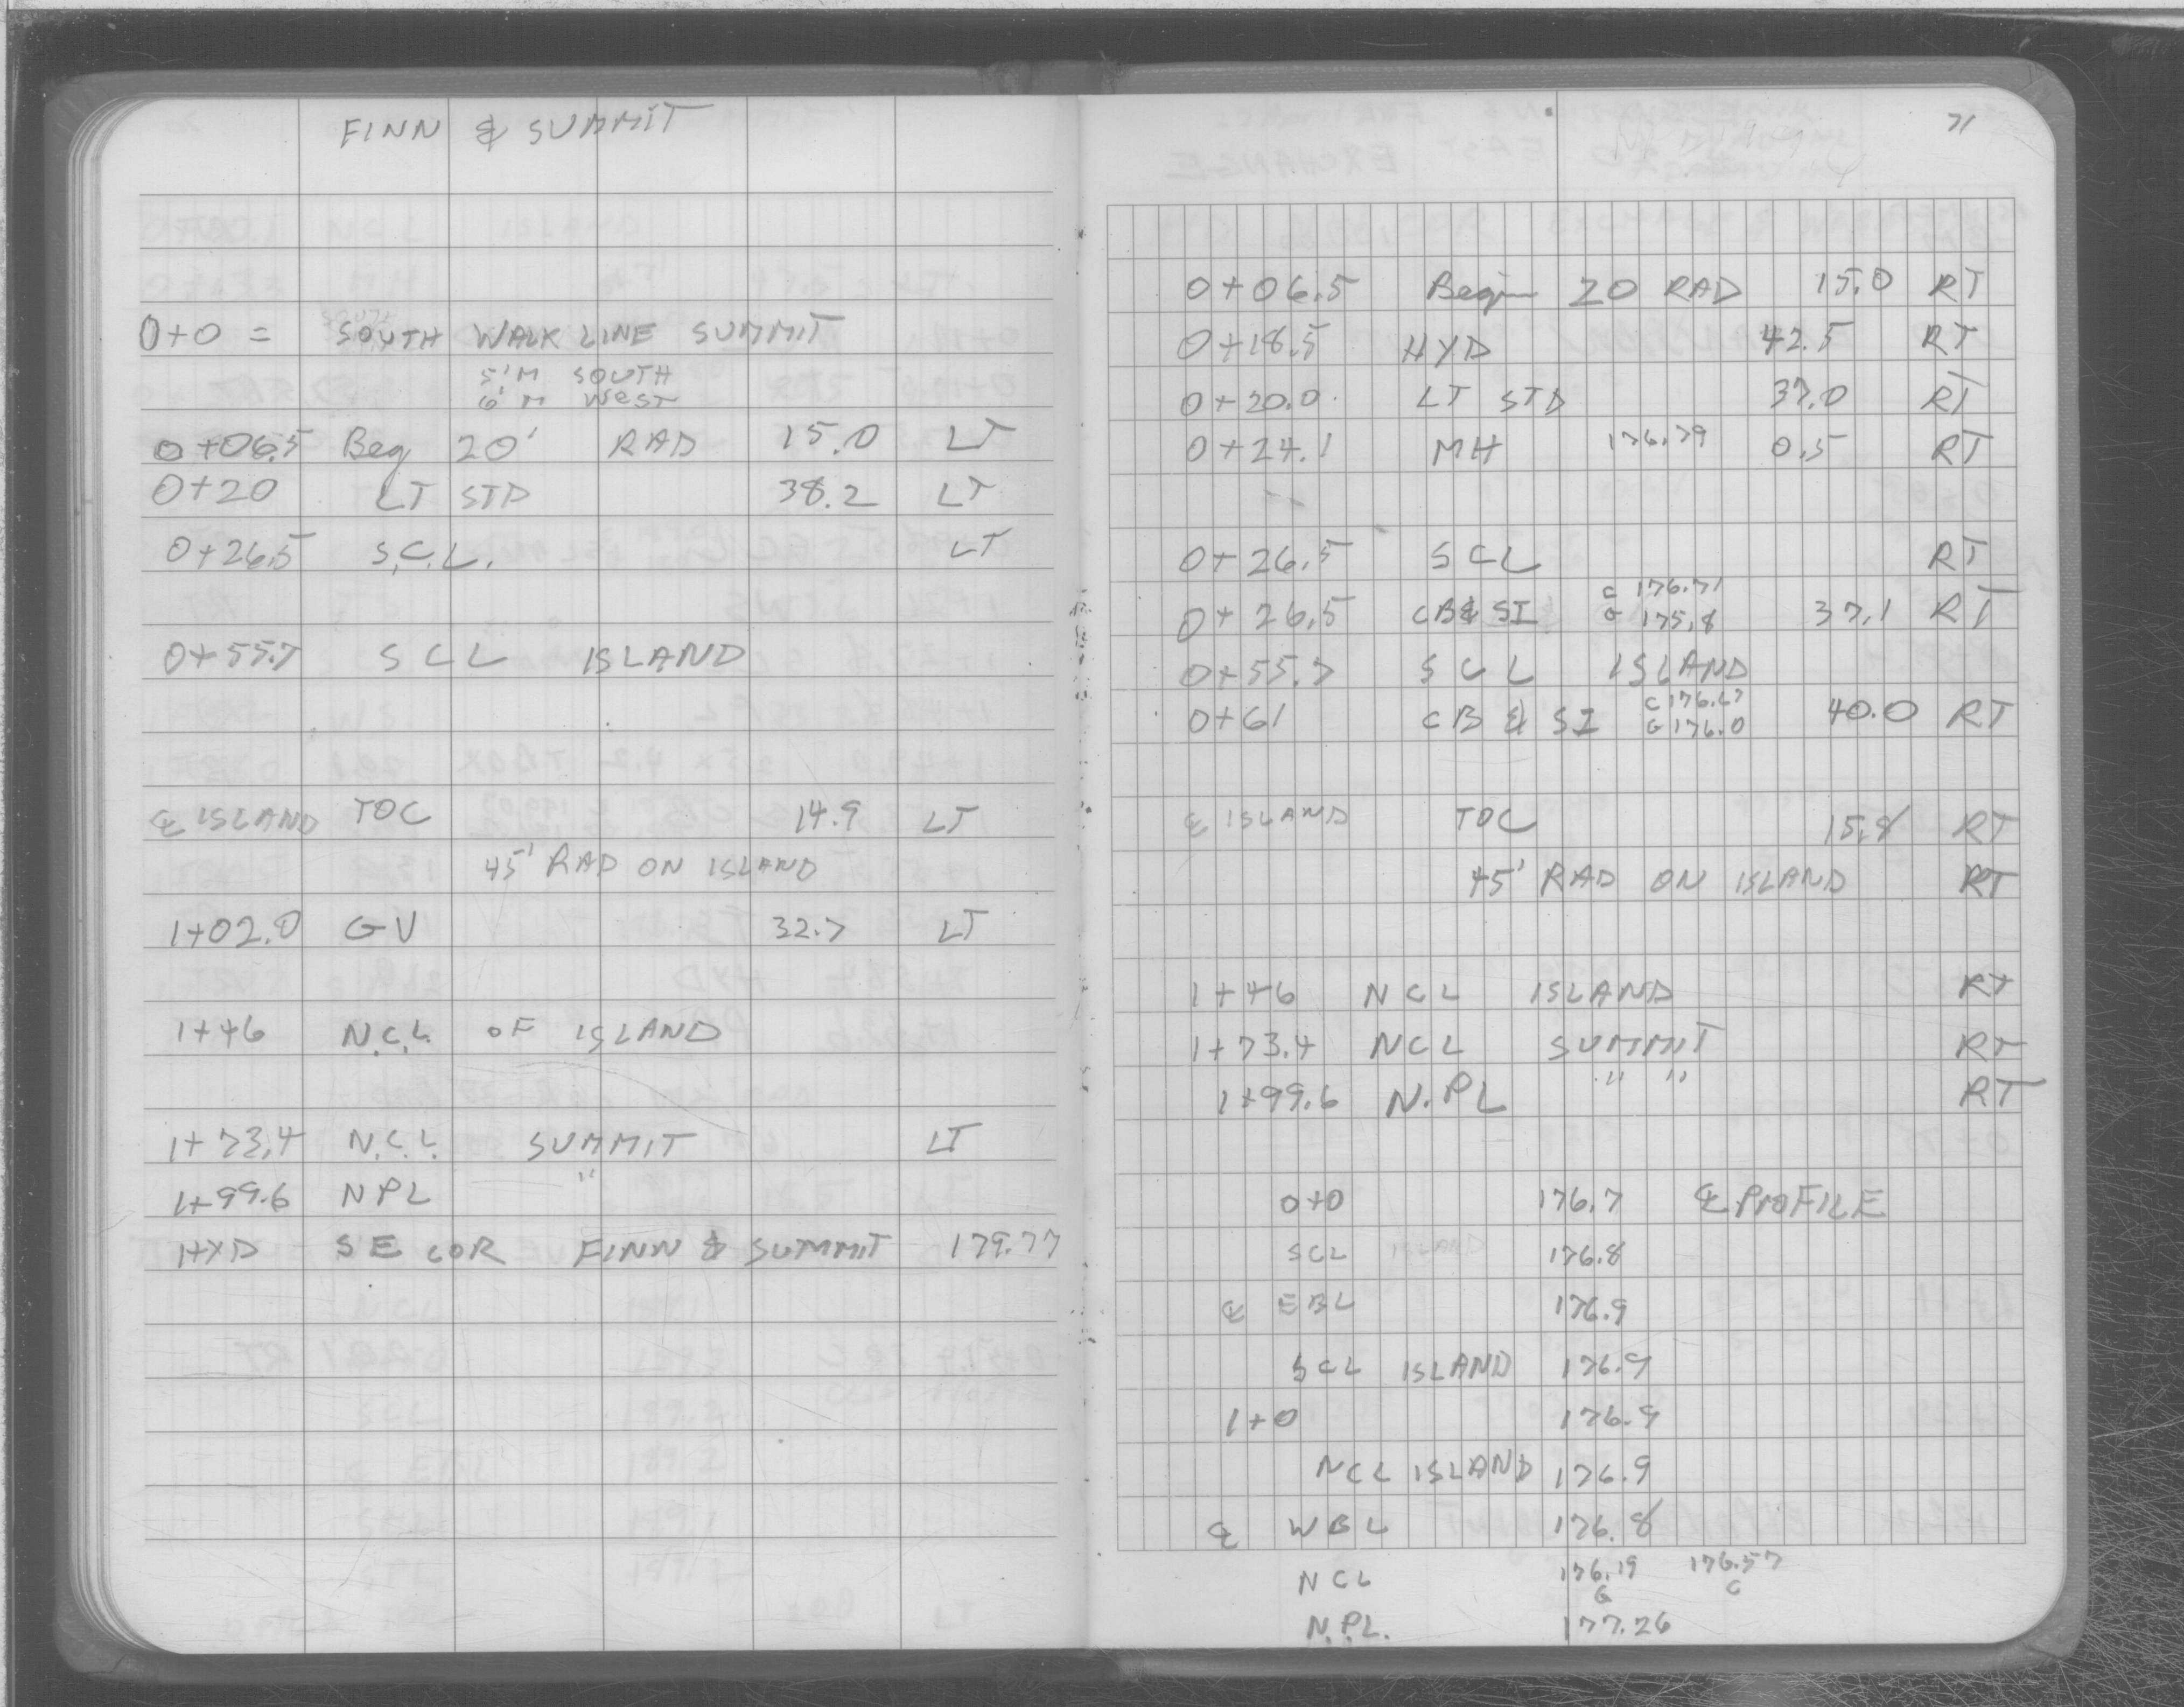 FINN & SUMMIT
0+0 = SOUTH WALK LINE SUMMIT
5' M SOUTH
6' M WEST
0+06.5 Beg 20' RAD 15.0 LT
0+20 LT STD 38.2 LT
0+26.5 S.C.L. LT
0+55.7 SCL ISLAND
℄ ISLAND TOC 14.9 LT
45' RAD ON ISLAND
1+02.0 GV 32.7 LT
1+46 N.C.L. OF ISLAND
1+73.4 N.C.L. SUMMIT LT
1+99.6 NPL "
HYD SE COR FINN & SUMMIT 179.77
71
0+06.5 Begin 20 RAD 15.0 RT
0+18.5 HYD 42.5 RT
0+20.0 LT STD 37.0 RT
0+24.1 MH 176.79 0.5 RT
0+26.5 SCL RT
0+26.5 CB & SI C 176.71 G 175.8 37.1 RT
0+55.7 SCL ISLAND
0+61 CB & SI C 176.67 G 176.0 40.0 RT
℄ ISLAND TOC 15.8 RT
45' RAD ON ISLAND RT
1+46 NCL ISLAND RT
1+73.4 NCL SUMMIT RT
1+99.6 N.PL " " RT
0+0 176.7 ℄ PROFILE
SCL 176.8
℄ EBL 176.9
SCL ISLAND 176.9
1+0 176.9
NCL ISLAND 176.9
℄ WBL 176.8
NCL 176.19 G 176.57 C
N.P.L. 177.26